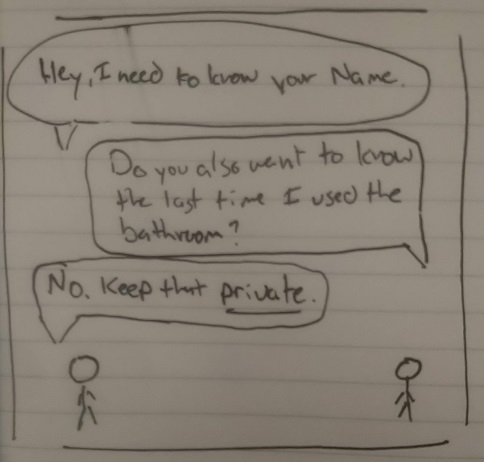 Hey, I need to know your Name.
Do you also want to know
the last time I used the
bathroom?
No. Keep that private.